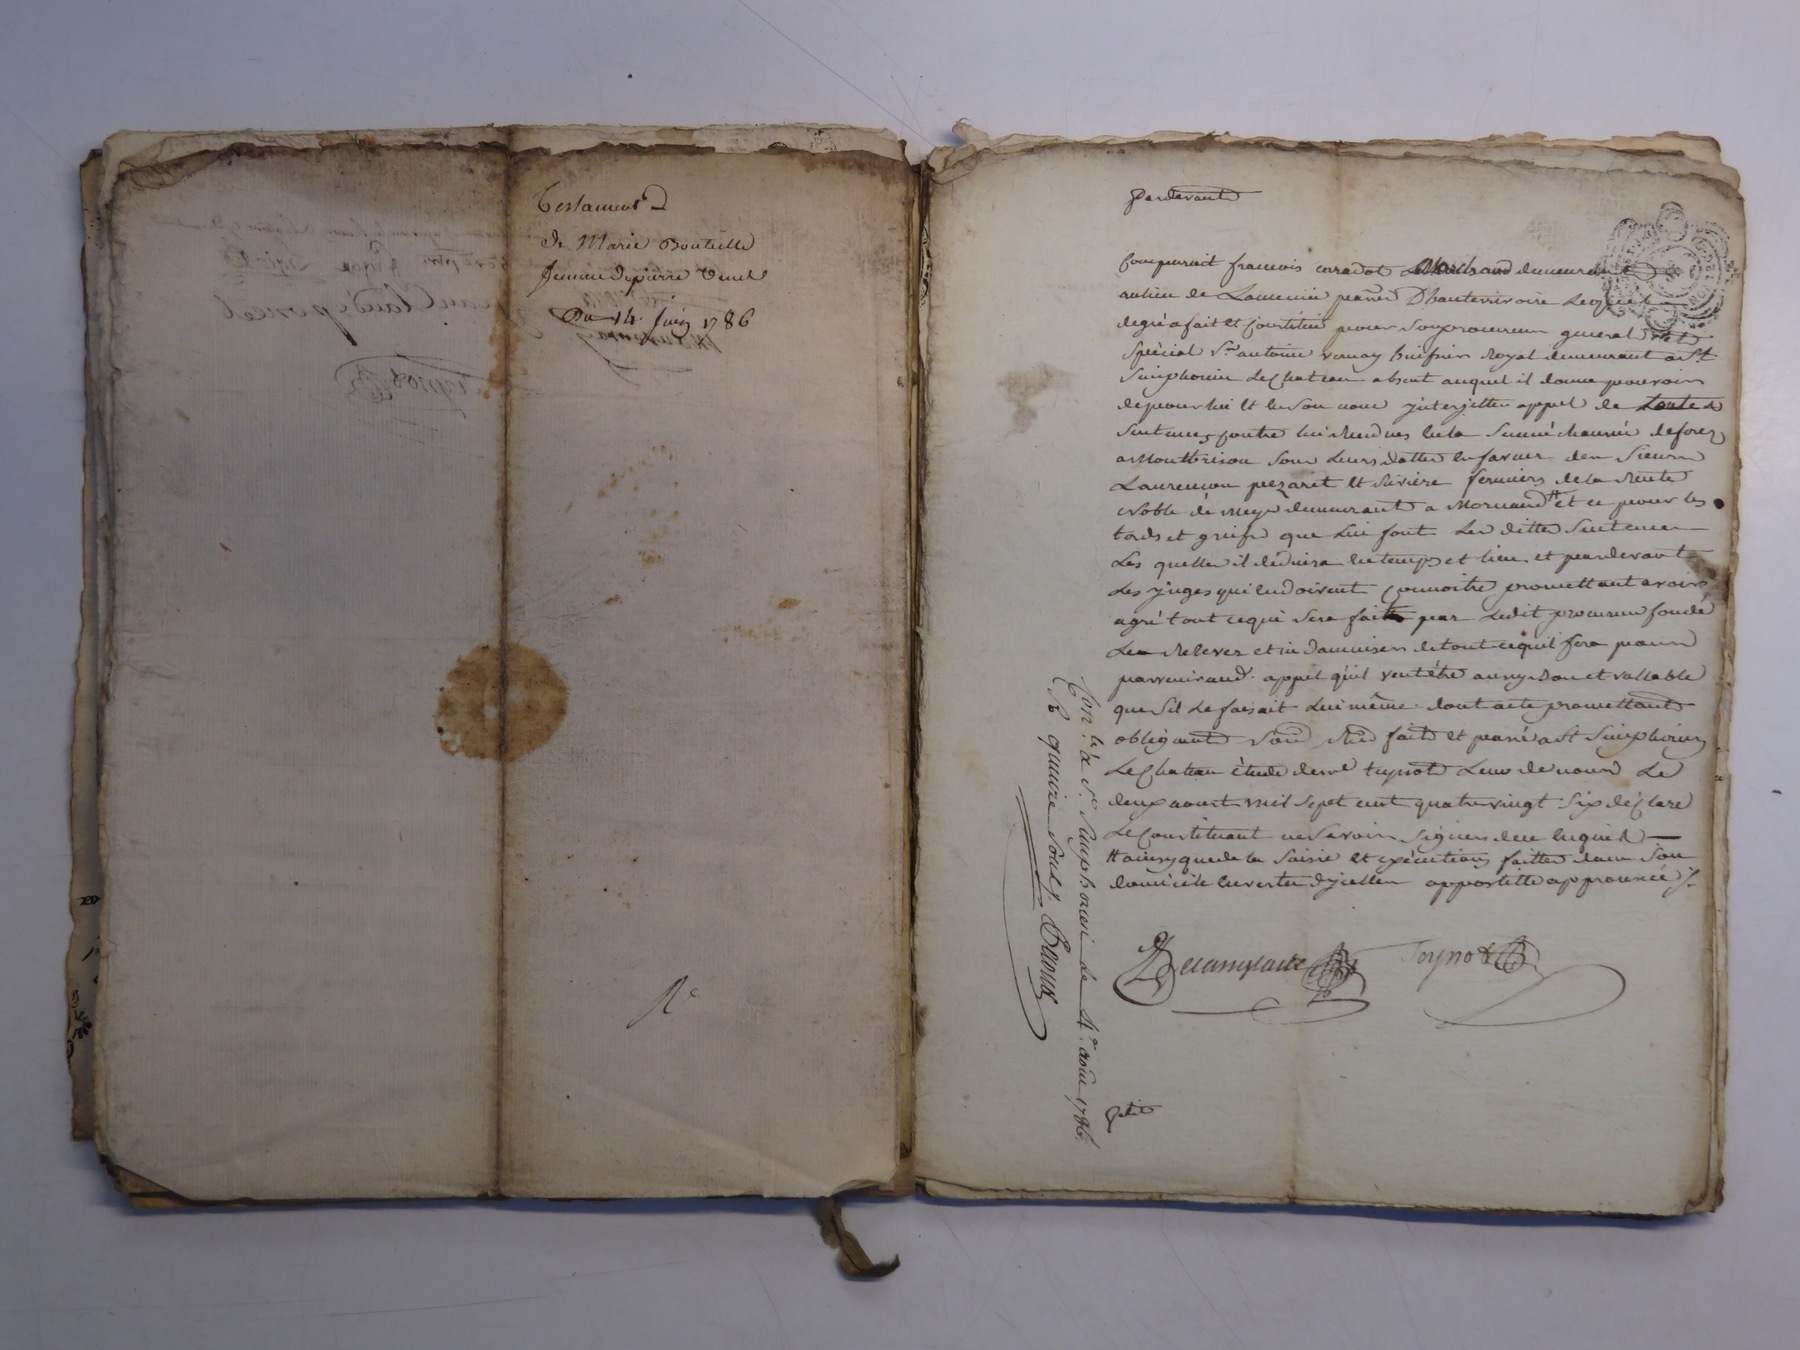 Testament
de Marie Bouteille
femme de pierre
Du 14 Juin 1786
Pardevant
Comparait francois caradot Marchand demeurant
au lieu de parr.e D'hauterivoire Lequel
degré a fait et Constitué pour son procureur general et
spécial S.r antoine vernay huissier Royal demeurant a S.t
Simphorien Le Chateau absent auquel il donne pouvoir
de pour lui et en son nom jnterjetter appel de toutes
sentences contre lui Rendues en la sennéchaussée de forez
a Montbrison sous leurs dattes en faveur des sieurs
Laurencon pezaret et Rivière fermiers de la Rente
Noble de demeurant a Mornand # et ce pour les
tords et griefs que Lui font Les dittes sentences
Les quelles il déduira en temps et lieu et pardevant
Les juges qui en doivent Connoitre promettant avoir
agré tout ce qui sera fait par Ledit procureur fondé
Le Relever et indamniser de tout ce qu'il fera pour
parvenir aud. appel qu'il veut être aussy bon et vallable
que s'il Le faisait Lui même dont acte promettant
obligeant fait et passé a St Simphorien
Le Chateau étude de m.e teynot L'un de nous Le
deux aoust mil sept cent quatre vingt six déclaré
Le Constituant ne savoir signer de ce enquis
# ainsy que de la saisie et exécutions faittes dans son
domicile en vertu d'jcelles appostille approuvée
Decamplaire Teynot
Con.lé à S.t Simphorien le 4.e août 1786.
R. quinze sous